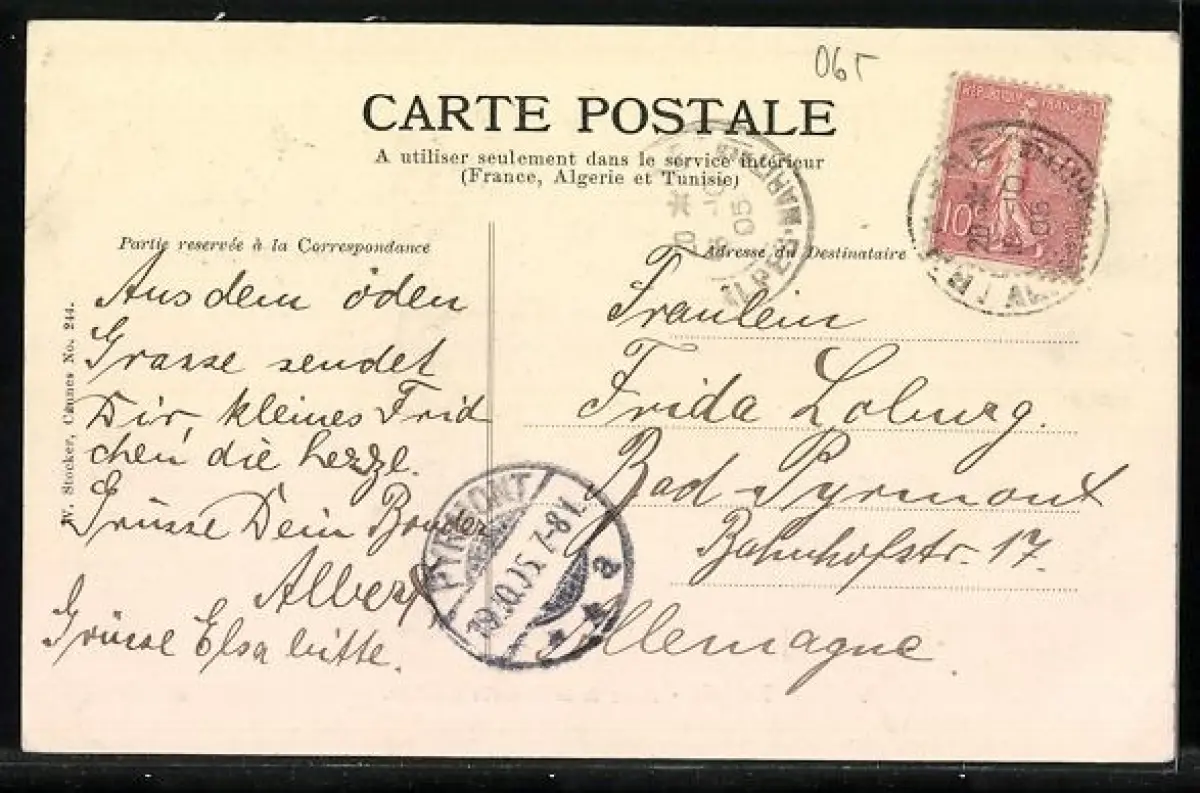 065
CARTE POSTALE
A utiliser seulement dans le service intérieur
(France, Algerie et Tunisie)
REPUBLIQUE FRANÇAISE
10c
Partie reservée à la Correspondance
Aus dem öden
Grasse sendet
Dir, kleines Frid
chen, die herzl.
Grüsse Dein Bruder
Albert
Grüsse Elsa bitte.
W. Stocker, Cannes No. 244.
Adresse du Destinataire
Fraulein
Frida Loburg.
Bad Pyrmont
Bahnhofstr. 17.
Allemagne.
PYRMONT
19.10.05.7-8
a
05
05